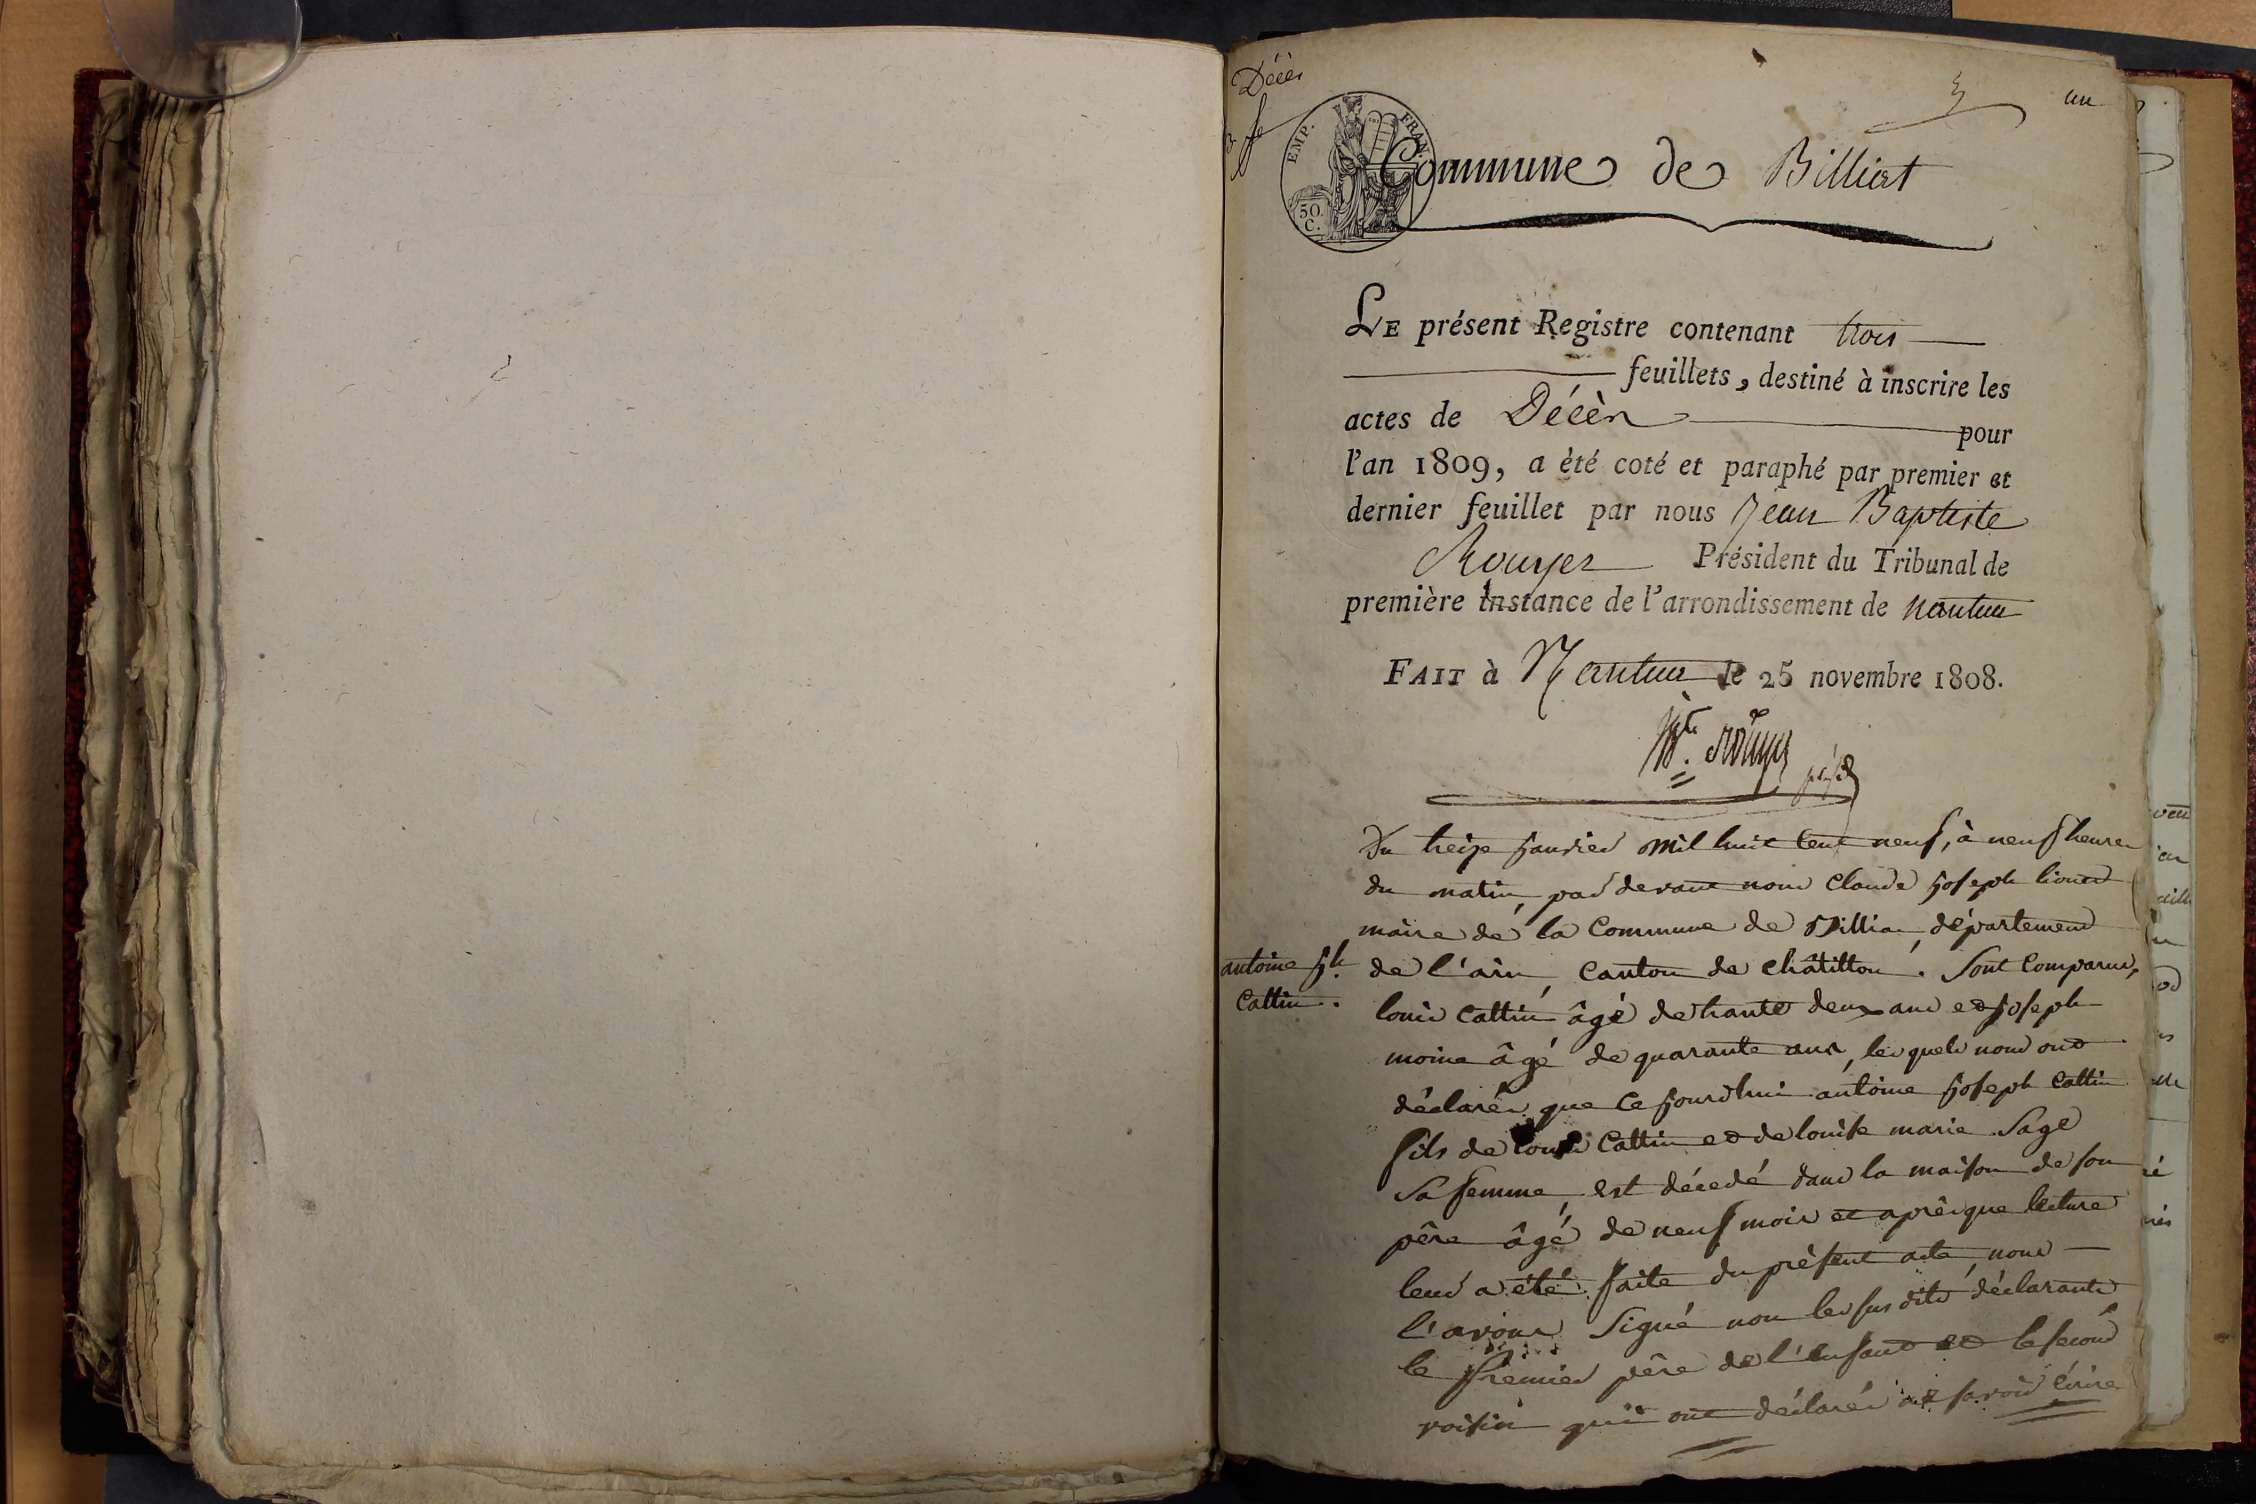 Décès
un
EMP. FRAN.
50. C.
Commune de Billiat
LE présent Registre contenant trois
feuillets, destiné à inscrire les
actes de Décès pour
l'an 1809, a été coté et paraphé par premier et
dernier feuillet par nous Jean Baptiste
Rouyer Président du Tribunal de
première instance de l'arrondissement de nantua
FAIT à Nantua le 25 novembre 1808.
Bte. Rouyer présid
Du treize janvier mil huit cent neuf, à neuf heures
du matin, par devant nous Claude joseph
maire de la Commune de Billia, département
antoine jh.
Cattin.
de l'ain, Canton de châtillon. Sont Comparus,
louis Cattin âgé de trante deux ans et joseph
moine âgé de quarante ans, lesquels nous ont
déclarés que ce jourdhui antoine joseph Cattin
fils de louis Cattin et de louise marie Sage
Sa femme, est décedé dans la maison de son
père âgé de neuf mois et après que lecture
leur a été faite du présent acte, nous
l'avons Signé non les sus dits déclarants
le premier père de l'enfant et le second
voisin qui ont déclarés ne savoir écrire